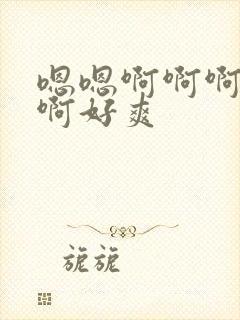 嗯嗯啊啊啊
啊好爽
旎旎